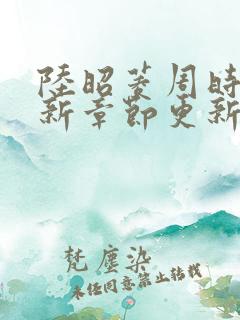 陸昭菱周時
新章節更新
梵塵染
未經同意禁止转载